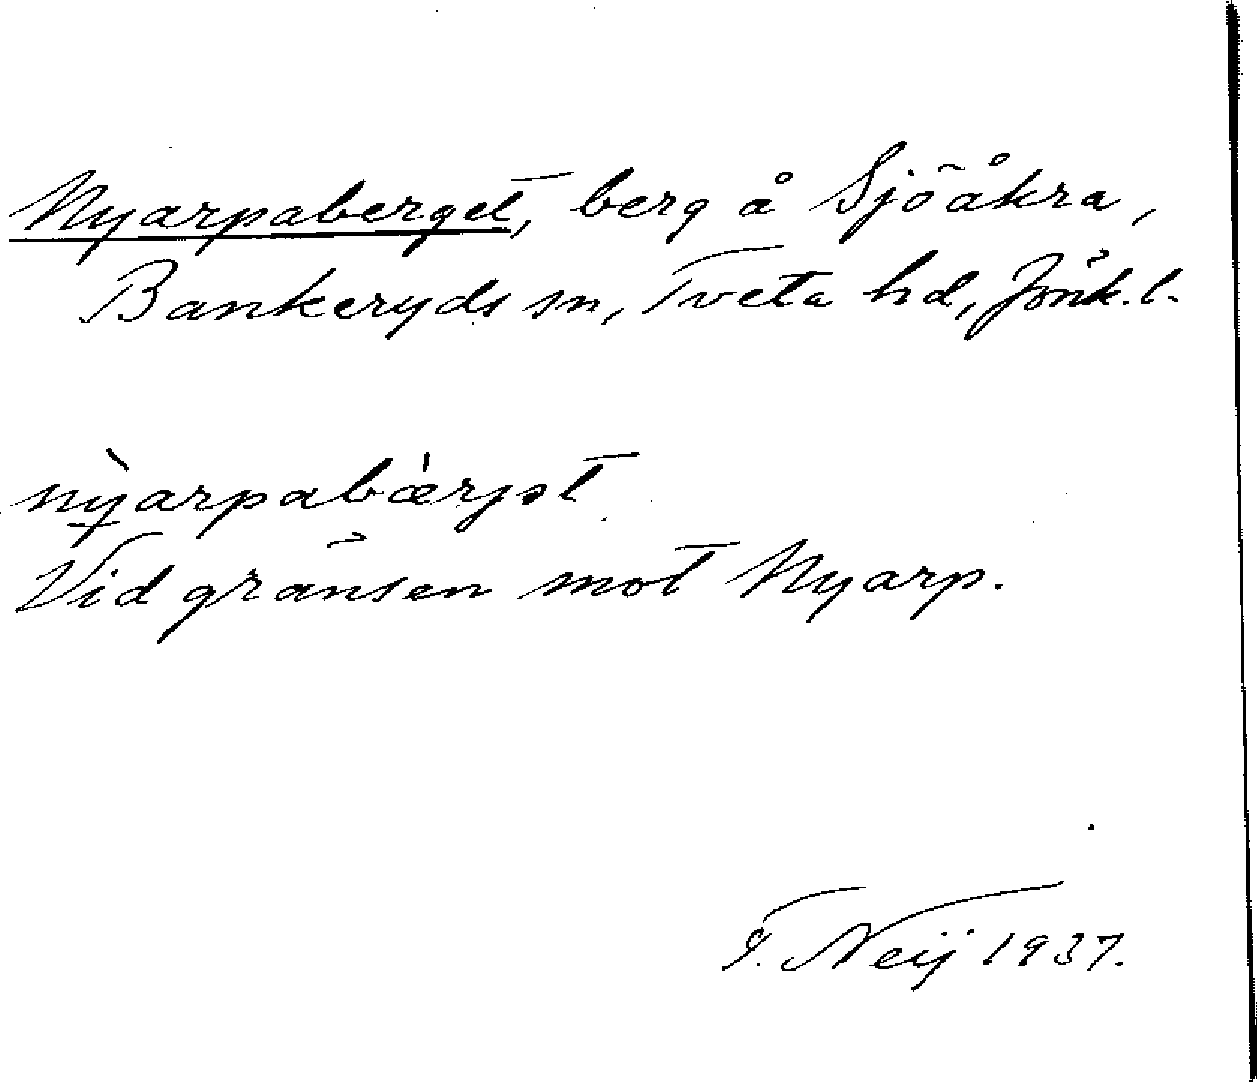 Nyarpaberget, berg å Sjöåkra,
Bankeryds sn, Tveta hd, Jönk. l.
nỳarpabæ̀rjət
Vid gränsen mot Nyarp.
F. Neij 1937.